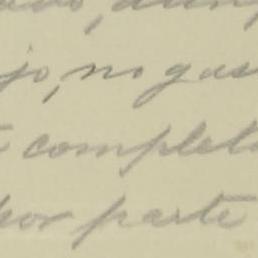 jo, no gus
complet
por parte